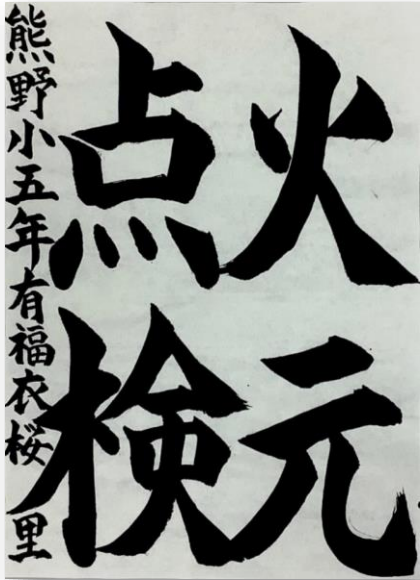 火元
点検
熊野小五年有福衣桜里